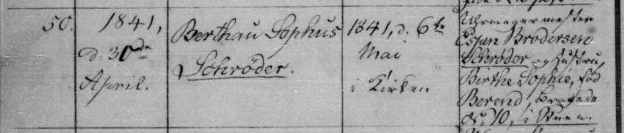 50.
1841,
d. 30de
April.
Berthau Sophus
Schrøder.
1841, d. 6te
Mai
i Kirken
Uhrmagermester
Esjan Brodersen
Schrøder og Hustru,
Birthe Sophie, fød
Berend,
No 10, i Stuen.